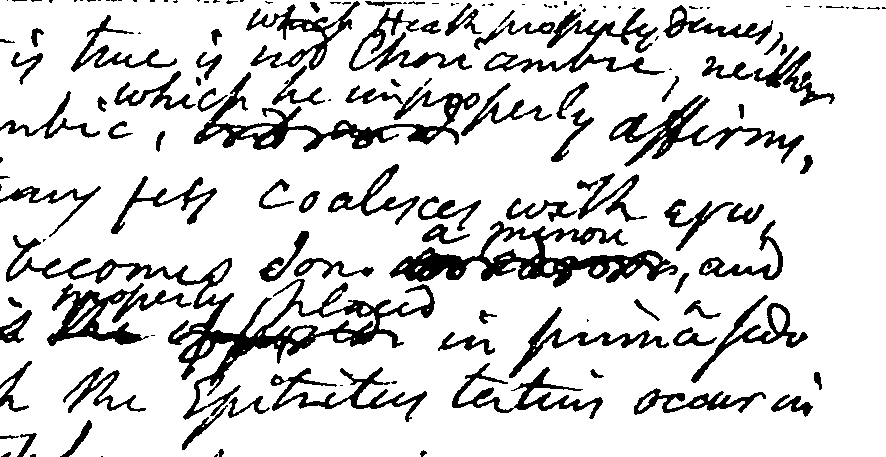 which Heath properly denies,
is true is not Choriambic, neither
which he improperly affirms,
mbic,
coalesces with εγω,
a minori
becomes Ion. , and
properly placed
in primâ sede
the Epitritus tertius occur in